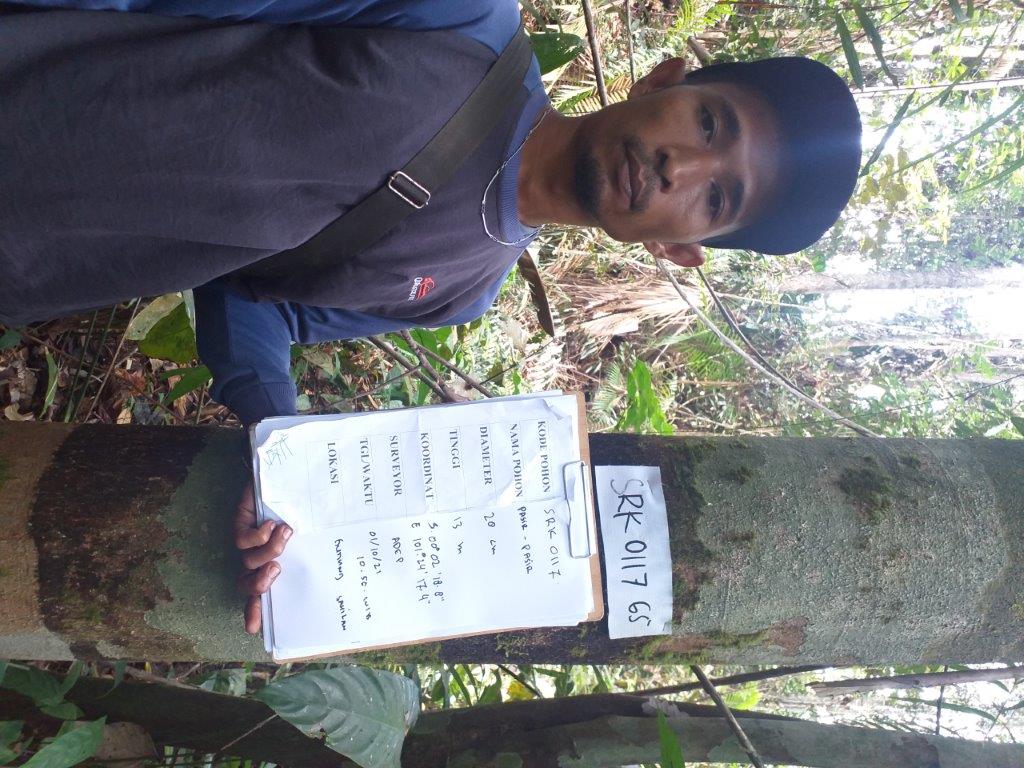 SRK 0117 GS
KODE POHON SRK 0117
NAMA POHON PASIR - PASIR
DIAMETER 20 cm
TINGGI 13 m
KOORDINAT S 00°02'18.8"
E 101°24'17.4"
SURVEYOR ADEP
TGL/WAKTU 01/10/21
10.50 WIB
LOKASI